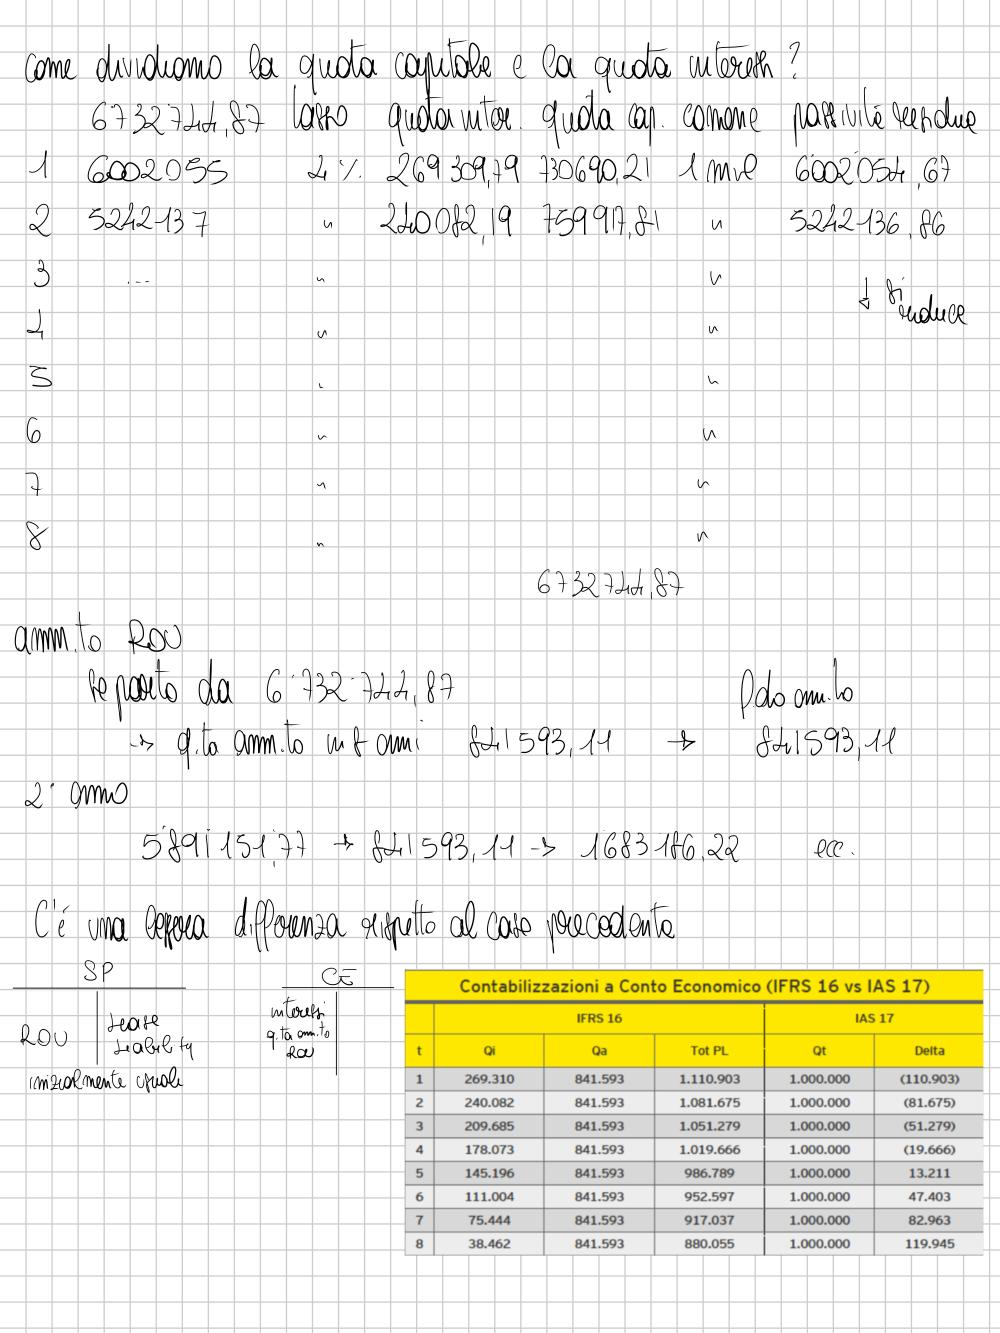 come dividiamo la quota capitale e la quota interessi?
6732744,87 tasso quota inter. quota cap. canone passività residua
1 6002055 4% 269309,79 730690,21 1 mil 6002054,67
2 5242137 " 240082,19 759917,81 " 5242136,86
3 ... " "
↓ si riduce
4 " "
5 " "
6 " "
7 " "
8 " "
6732744,87
amm.to ROU
se parto da 6'732'744,87
f.do amm.to
→ q.ta amm.to in 8 anni 841593,11 → 841593,11
2° anno
5'891'151,77 → 841593,11 → 1683186,22 ecc.
C'è una leggera differenza rispetto al caso precedente
SP
ROU Lease Liability
inizialmente uguale
CE
interessi
q.ta amm.to
ROU
Contabilizzazioni a Conto Economico (IFRS 16 vs IAS 17)
IFRS 16 IAS 17
t Qi Qa Tot PL Qt Delta
1 269.310 841.593 1.110.903 1.000.000 (110.903)
2 240.082 841.593 1.081.675 1.000.000 (81.675)
3 209.685 841.593 1.051.279 1.000.000 (51.279)
4 178.073 841.593 1.019.666 1.000.000 (19.666)
5 145.196 841.593 986.789 1.000.000 13.211
6 111.004 841.593 952.597 1.000.000 47.403
7 75.444 841.593 917.037 1.000.000 82.963
8 38.462 841.593 880.055 1.000.000 119.945